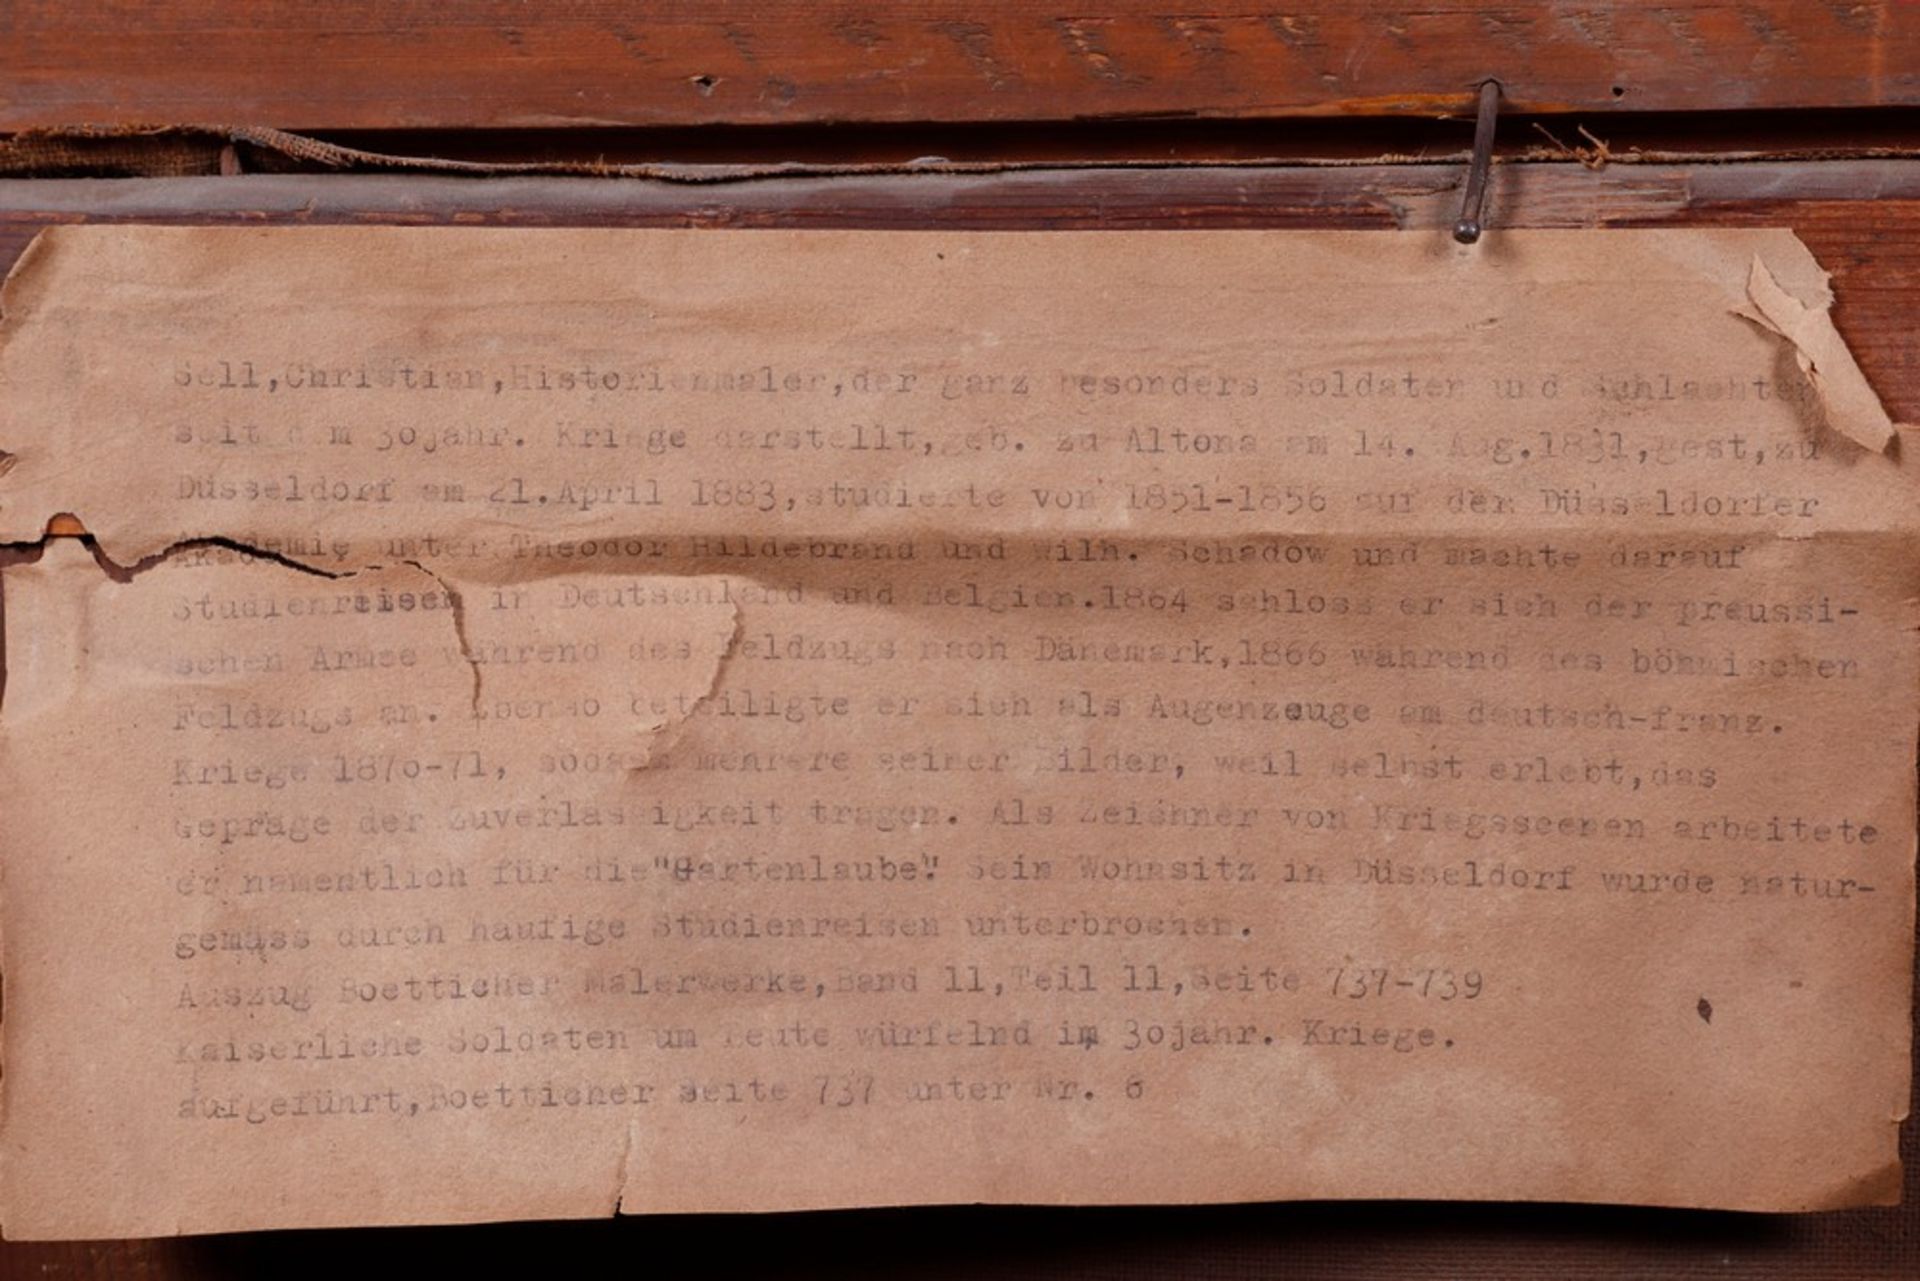 Sell,Christian,Historienmaler,der ganz besonders Soldaten und Schlachten
seit dem 30jähr. Kriege darstellt,geb. zu Altona am 14. Aug.1831,gest,zu
Düsseldorf am 21.April 1883,studierte von 1851-1856 auf der Düsseldorfer
Akademie unter Theodor Hildebrand und Wilh. Schadow und machte darauf
Studienreisen in Deutschland und Belgien.1864 schloss er sich der preussi-
schen Armee während des Feldzugs nach Dänemark,1866 während des böhmischen
Feldzugs an. Ebenso beteiligte er sich als Augenzeuge am deutsch-franz.
Kriege 1870-71, sodass mehrere seiner Bilder, weil selbst erlebt,das
Gepräge der Zuverlässigkeit tragen. Als Zeichner von Kriegsscenen arbeitete
er namentlich für die"Gartenlaube". Sein Wohnsitz in Düsseldorf wurde natur-
gemäss durch häufige Studienreisen unterbrochen.
Auszug Boetticher Malerwerke,Band 11,Teil 11,Seite 737-739
Kaiserliche Soldaten um Beute würfelnd im 30jähr. Kriege.
aufgeführt,Boetticher Seite 737 unter Nr. 6